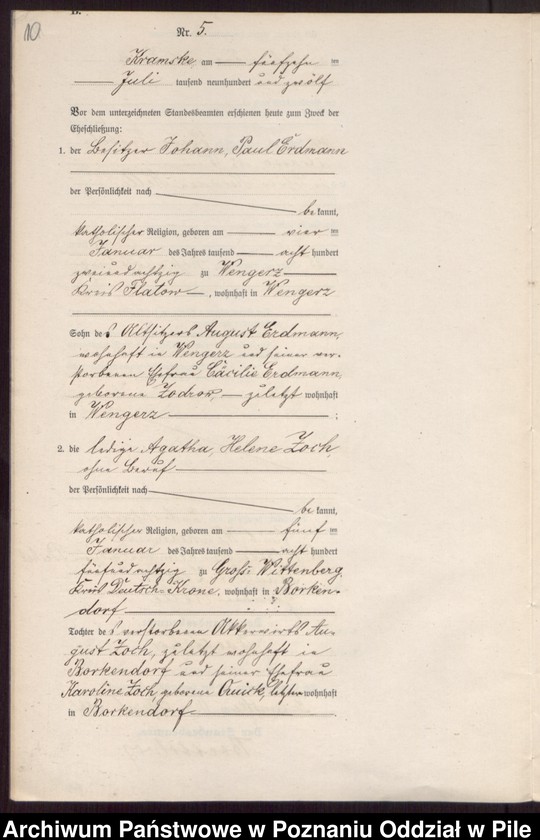 10
Nr. 5.
Kramske, am fünfzehn ten
Juli tausend neunhundert und zwölf
Vor dem unterzeichneten Standesbeamten erschienen heute zum Zweck der
Eheschließung:
1. der Besitzer Johann, Paul Erdmann
der Persönlichkeit nach
be kannt,
katholischer Religion, geboren am vier ten
Januar des Jahres tausend acht hundert
zweiundachtzig zu Wengerz
Kreis Flatow, wohnhaft in Wengerz
Sohn des Altsitzers August Erdmann,
wohnhaft in Wengerz und seiner ver-
storbenen Ehefrau Cäcilie Erdmann,
geborene Zodrow, zuletzt wohnhaft
in Wengerz ;
2. die ledige Agatha, Helene Zoch
ohne Beruf
der Persönlichkeit nach
be kannt,
katholischer Religion, geboren am fünf ten
Januar des Jahres tausend acht hundert
fünfundachtzig zu Groß-Wittenberg,
Kreis Deutsch-Krone, wohnhaft in Borken-
dorf
Tochter des verstorbenen Ackerwirts Au-
gust Zoch, zuletzt wohnhaft in
Borkendorf und seiner Ehefrau
Karoline Zoch, geborene Quick, wohnhaft
in Borkendorf.
Archiwum Państwowe w Poznaniu Oddział w Pile